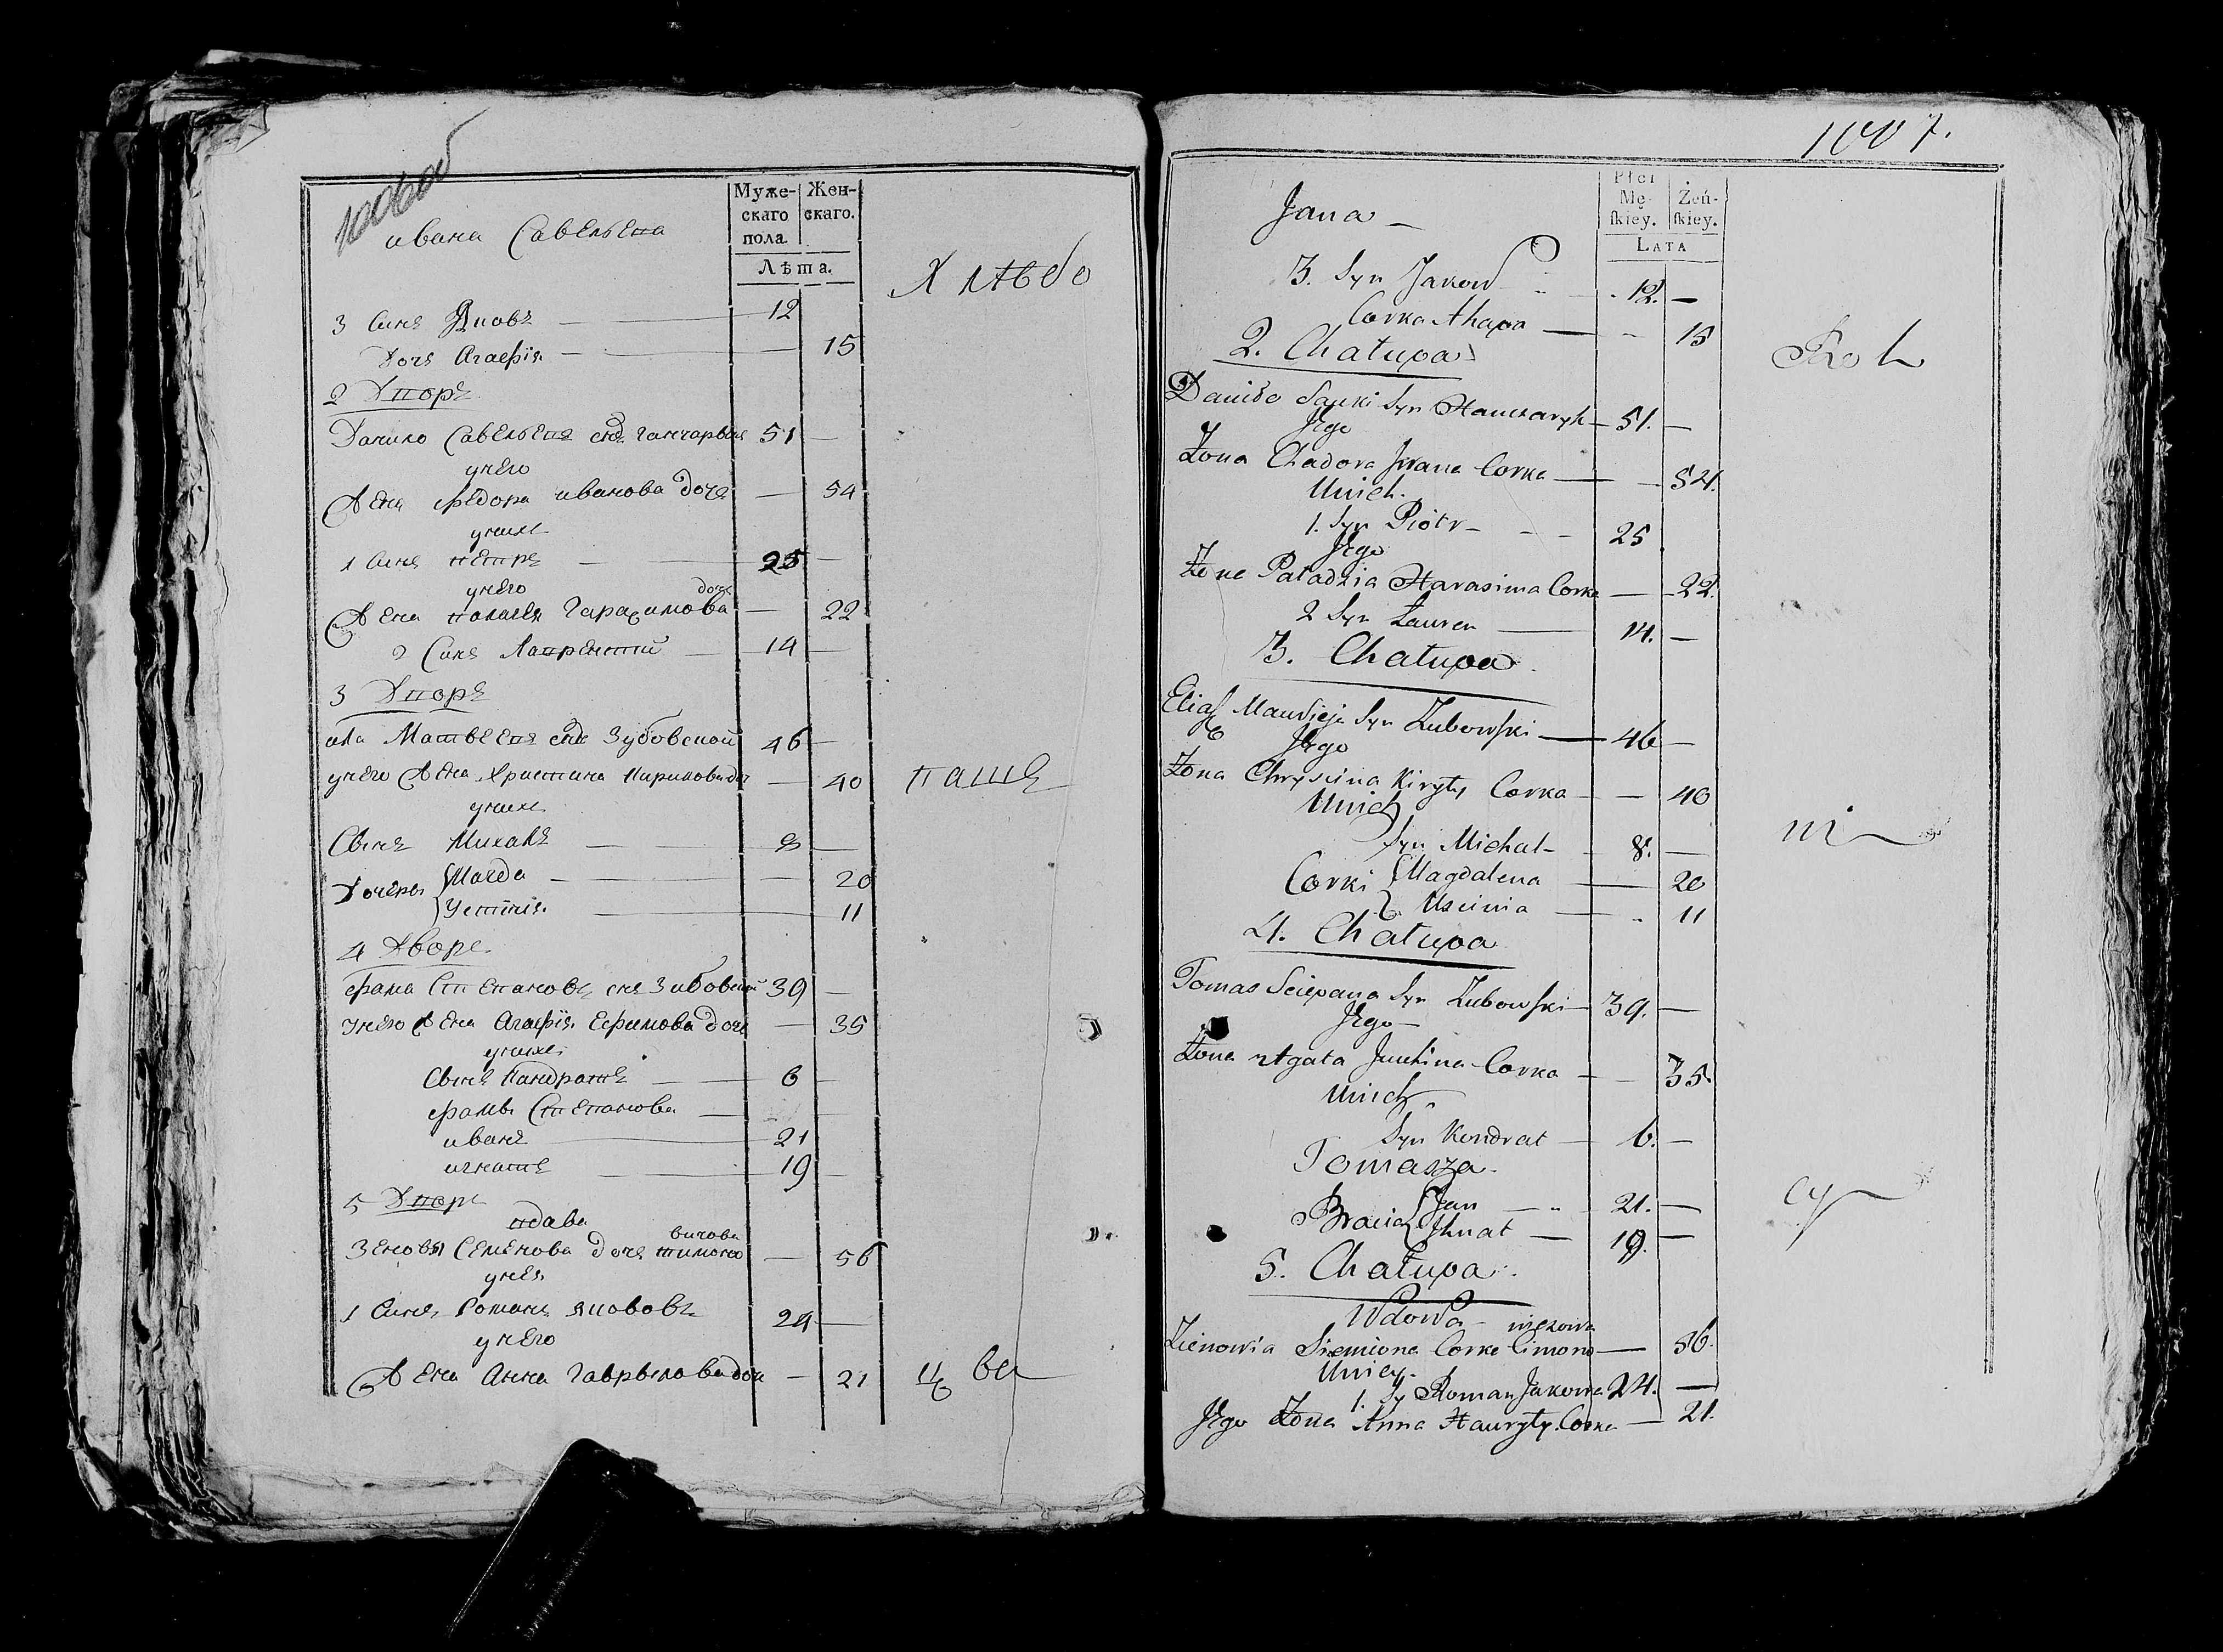 1006об
ивана Савельева
Муже-
скаго
пола.
Жен-
скаго.
Лѣта.
Хлѣбо
3 Синъ Яковъ — 12
Дочь Агаефія — 15
2 Дворъ
Данило Савельевъ снъ ганчарыкъ 51 —
унего
Жена федора иванова дочь — 54
унихъ
1 Синъ петръ — 25 —
унего
дочь
Жена палагея Гарасимова — 22
2 Синъ Лаврентий — 14 —
3 Дворъ
ила Матвеевъ снъ Зубовской 46 —
унего Жена Христина Кирилова до — 40
пашъ
унихъ
Сынъ Михалъ — 8 —
Дочери Магда — 20
Устинія — 11
4 Дворъ
фама Степановъ снъ Зубовский 39 —
унего Жена Агаефія Ефимова дочь — 35
унихъ
Сынъ Кандратъ — 6 —
фамы Степанова —
иванъ — 21
игнатъ — 19 —
5 Дворъ
вдава
вичова
Зеновья Семенова дочь тимоно — 56
унея
1 Синъ Романъ яковавъ 24 —
унего
Жена Анна Гаврылова доч — 21
цы ва
1007.
Jana —
Płci
Mę-
ſkiey.
Żeń-
ſkiey.
LATA
3. Syn Jakow — 12. —
Corka Ahapa — 15
2. Chałupa
Rol
Daniło Sawki Syn Hanczaryk — 51. —
Jego
Żona Chadora Jwana Corka — 54.
Unich.
1. Syn Piotr — 25
Jego
Żona Paładzia Harasima Corka — 22.
2 Syn Lauren — 14. —
3. Chałupa
Eliaſz Mausieja Syn Zubowſki — 46 —
Jego
Żona Chryscina Kiryły Corka — 40
Unich
ni
Syn Michał — 8. —
Corki Magdalena — 20
Uscinia — 11
4. Chałupa
Tomas Sciepana Syn Zubowſki — 39. —
Jego —
Żona Agata Juchina Corka — 35.
Unich
Syn Kondrat — 6. —
Tomasza
cy
Bracia Jan — 21. —
Jhnat — 19. —
5. Chałupa
Wdowa — wiczowa
Zienowia Siemiona Corka Cimono — 56.
Uniey
1. Sy Roman Jakowa 24. —
Jego Żona Anna Hauryły Corka — 21.